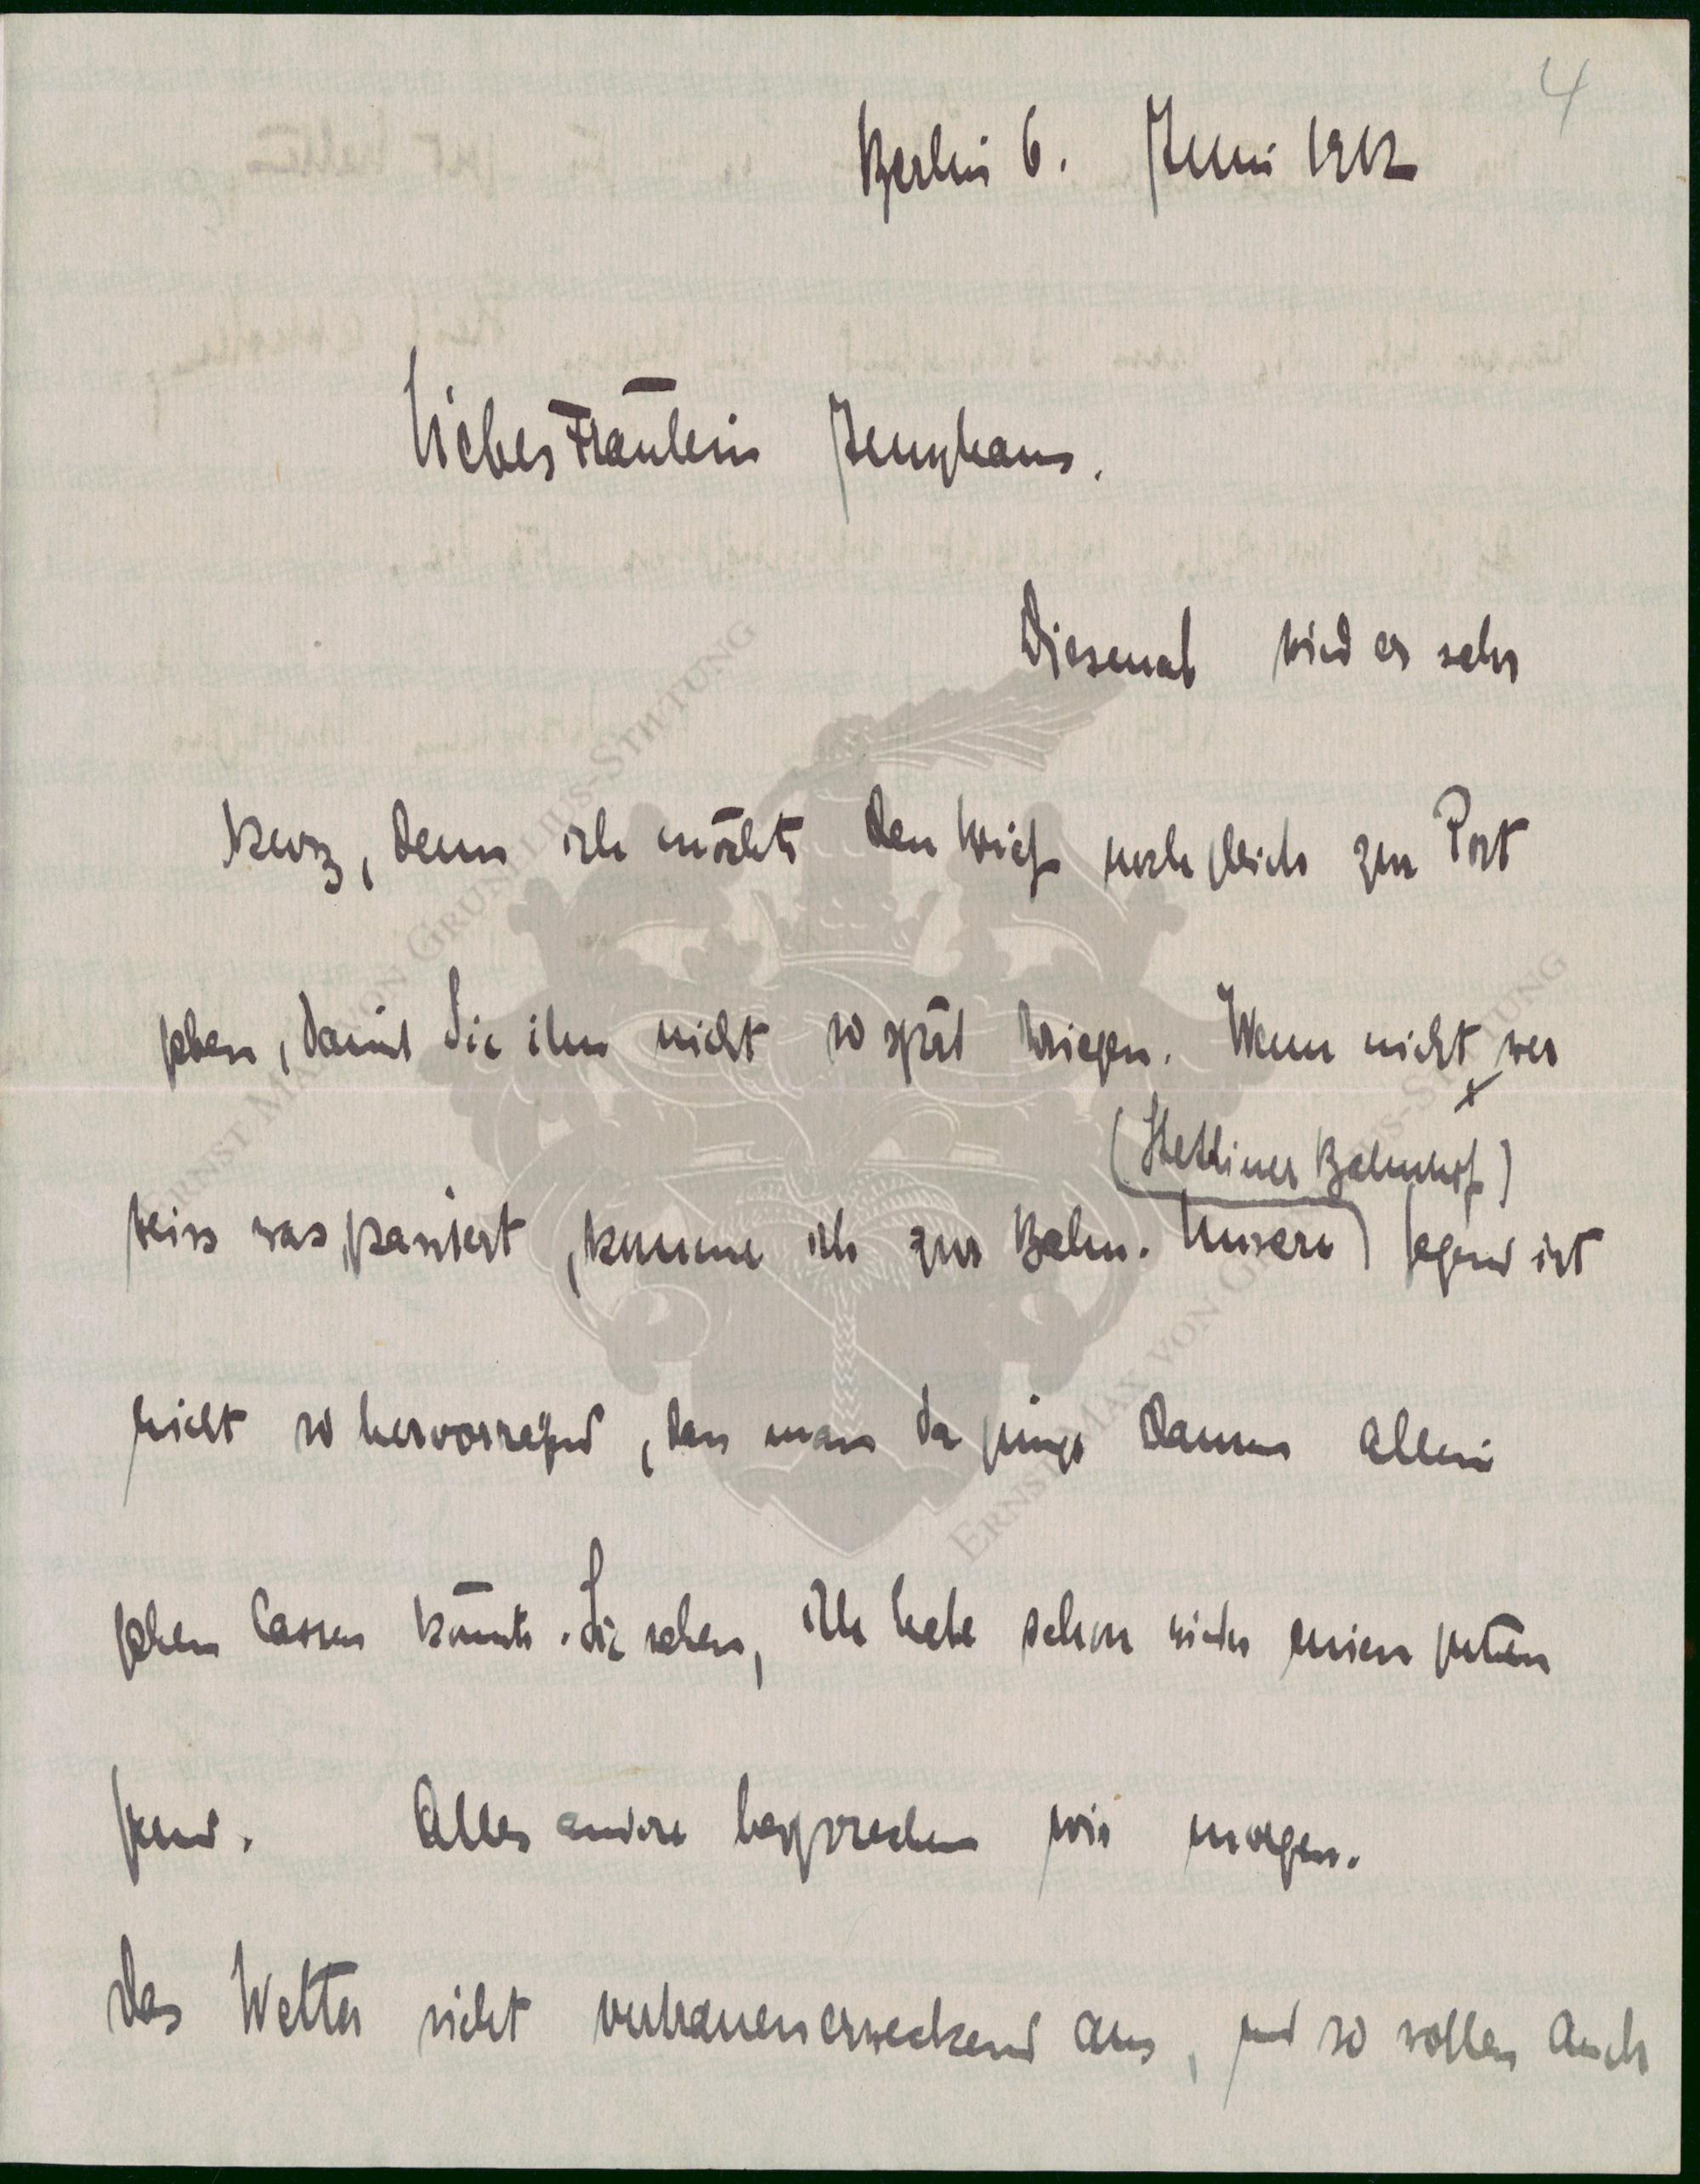 4
Berlin 6. Juni 1912
Liebes Fräulein Junghans.
Diesemal wird es sehr
kurz, denn ich möchte den Brief noch gleich zur Post
geben, damit Sie ihn nicht so spät kriegen. Wenn nicht x wer
(Stettiner Bahnhof)
weiss was passiert, komme ich zur Bahn. Unsere Gegend ist
nicht so hervorragend, dass man da junge Damen allein
gehen lassen könnte. Sie sehen, ich habe schon wieder einen guten
Grund. Alles andere besprechen wir morgen.
Das Wetter sieht vertrauenerweckend aus, und so wollen auch
ERNST MAX VON GRUNELIUS-STIFTUNG
ERNST MAX VON GRUNELIUS-STIFTUNG